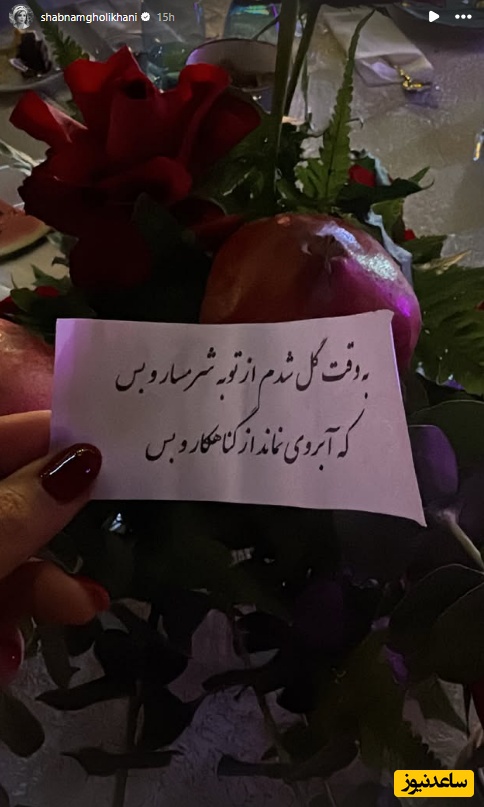 shabnamgholikhani 15h
به وقت گل شدم از توبه شرمسار و بس
که آبروی نماند از گناهکار و بس
ساعدنیوز